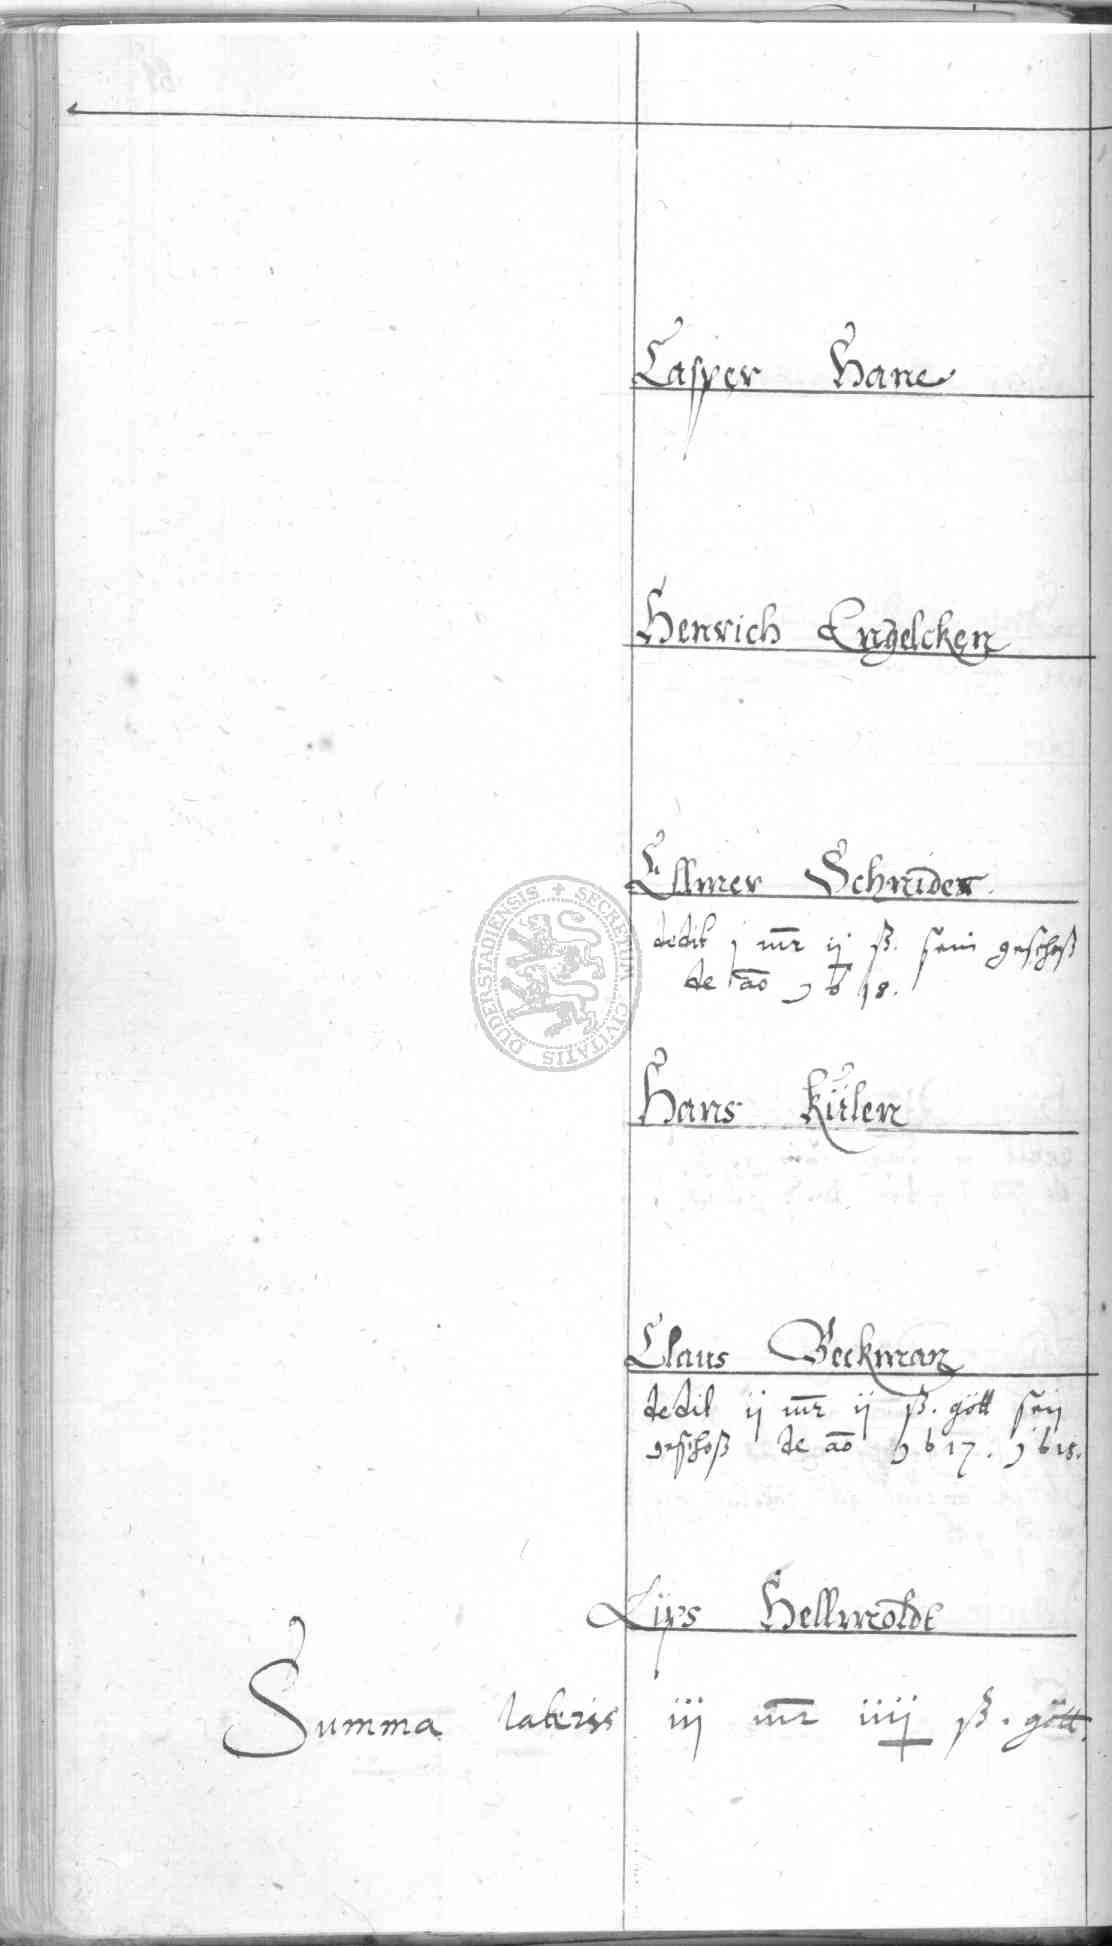 Casper Hane
Henrich Engelcken
Ellmer Schnider
dedit j mr ij ß. sein geschoß
de ao j618.
Hans Külen
Claus Beckman
dedit ij mr ij ß. gött sein
geschoß de ao j617. j618.
Lips Hellwoldt
Summa lateris iij mr iiij ß. gött.
SECRETUM CIVITATIS DUDERSTADIENSIS